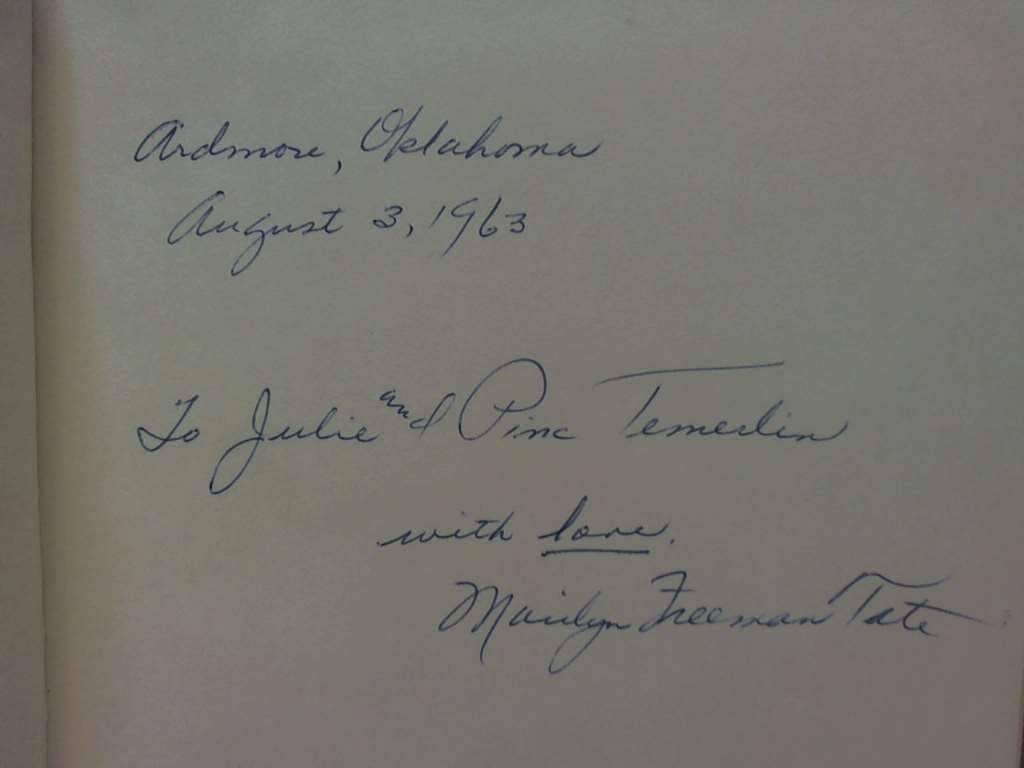 Ardmore, Oklahoma
August 3, 1963
To Julie and Pinc Temerlin
with love.
Marilyn Freeman Tate